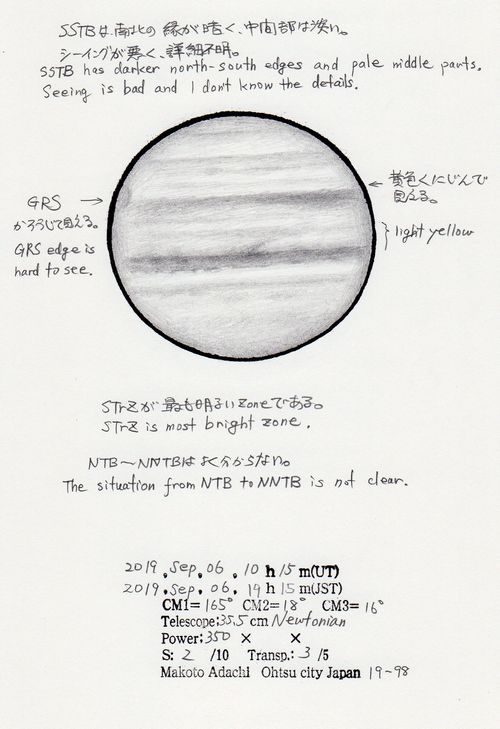 SSTBは、南北の縁が暗く、中間部は淡い。
シーイングが悪く、詳細不明。
SSTB has darker north-south edges and pale middle parts.
Seeing is bad and I don't know the details.
GRS →
かろうじて見える。
GRS edge is
hard to see.
← 黄色くにじんで
見える。
} light yellow
STrZが最も明るいzoneである。
STrZ is most bright zone.
NTB～NNTBはよく分からない。
The situation from NTB to NNTB is not clear.
2019 , Sep, 06 , 10 h 15 m(UT)
2019 , Sep, 06 , 19 h 15 m(JST)
CM1= 165° CM2= 18° CM3= 16°
Telescope:35.5 cm Newtonian
Power:350 × ×
S: 2 /10 Transp.: 3 /5
Makoto Adachi Ohtsu city Japan 19-98